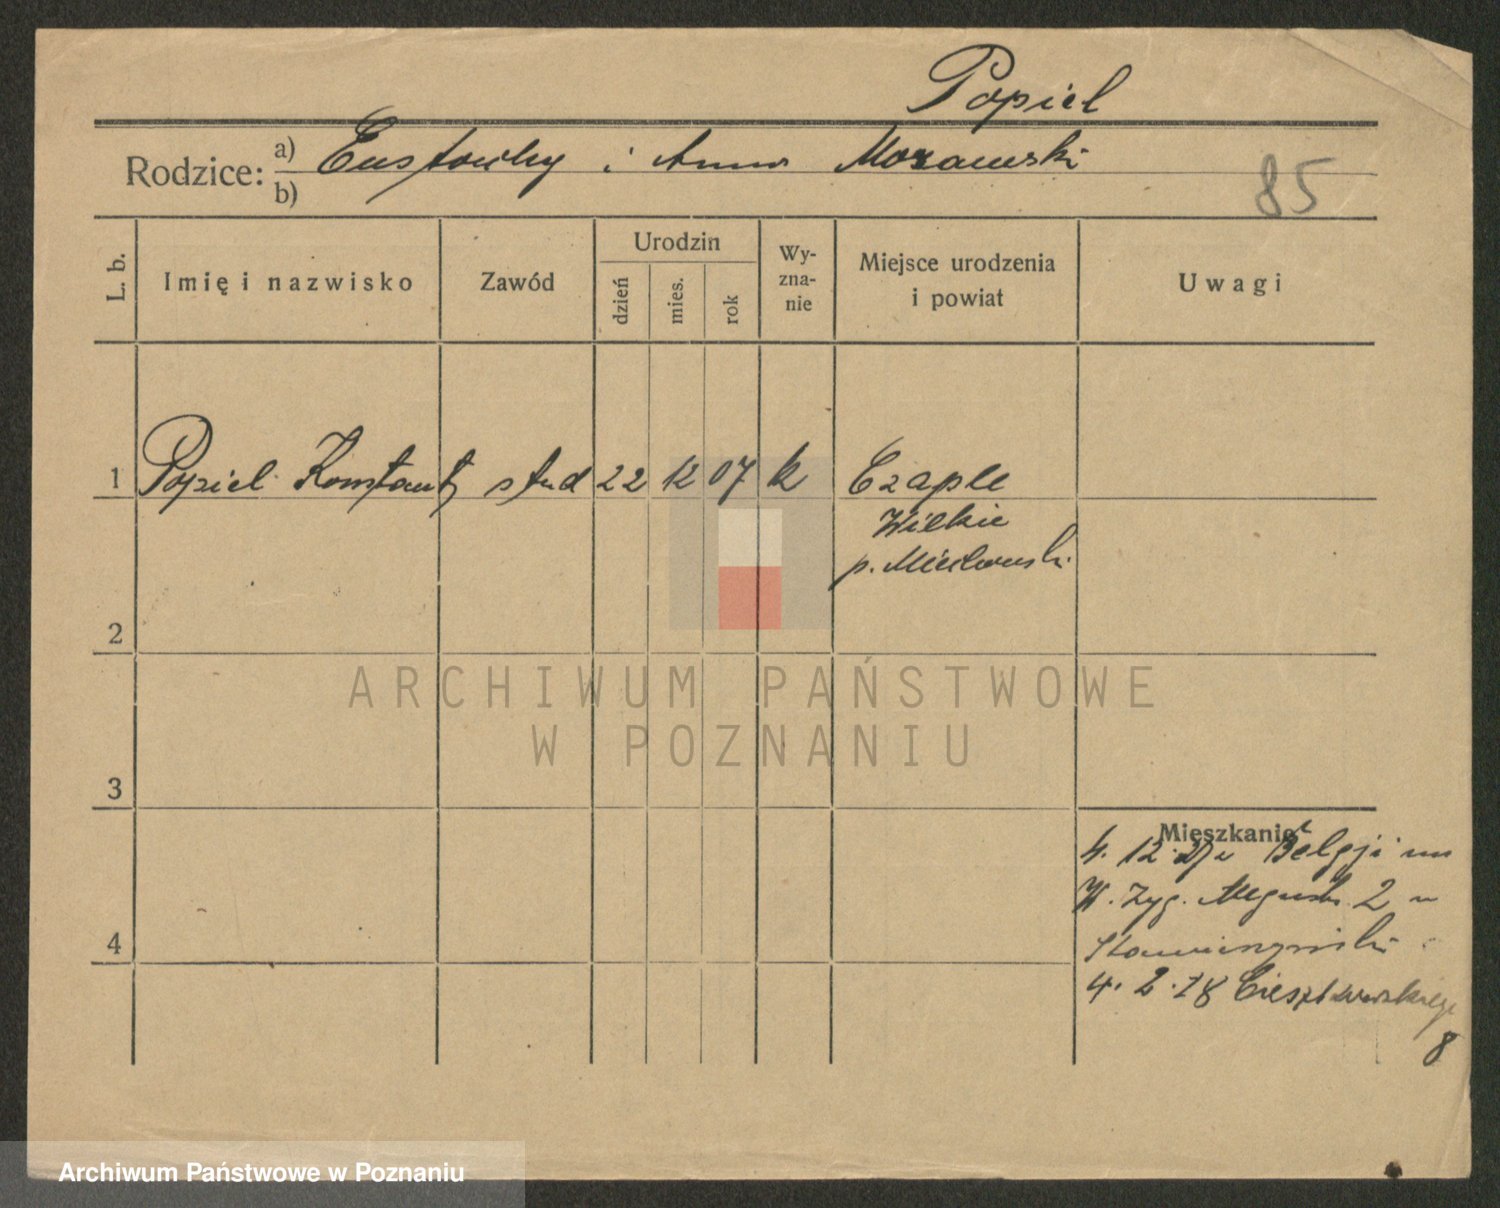 Popiel
Rodzice: a) Eustachy i Anna Morawski
b)
85
L. b.
Imię i nazwisko
Zawód
Urodzin
dzień
mies.
rok
Wy-
zna-
nie
Miejsce urodzenia
i powiat
Uwagi
1 Popiel Konstanty stud 22 12 07 k Czaple
Wielkie
p. Miechowski
2
ARCHIWUM PAŃSTWOWE
W POZNANIU
3
Mieszkanie
4. 12. 27 z Belgji
W. Zyg. August. 2 u
4
4. 2. 28 Cieszkowskiego
8
Archiwum Państwowe w Poznaniu